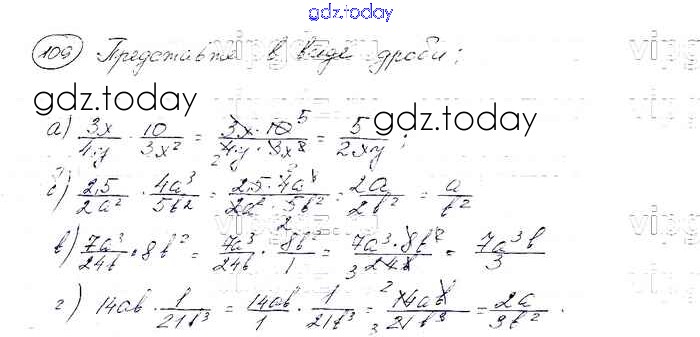 gdz.today
109 Представьте в виде дроби:
gdz.today gdz.today
а) 3x/4y · 10/3x² = 3x · 10 5/2 4y · 3x² = 5/2xy ;
б) 2,5/2a² · 4a³/5b² = 2,5 · 4a³/2a² · 5b² = 2a/2b² = a/b²
в) 7a³/24b · 8b² = 7a³/24b · 8b²/1 = 7a³ · 8b²/3 24b = 7a³b/3
г) 14ab · 1/21b³ = 14ab/1 · 1/21b³ = 2 14ab/3 21b³ = 2a/3b² .